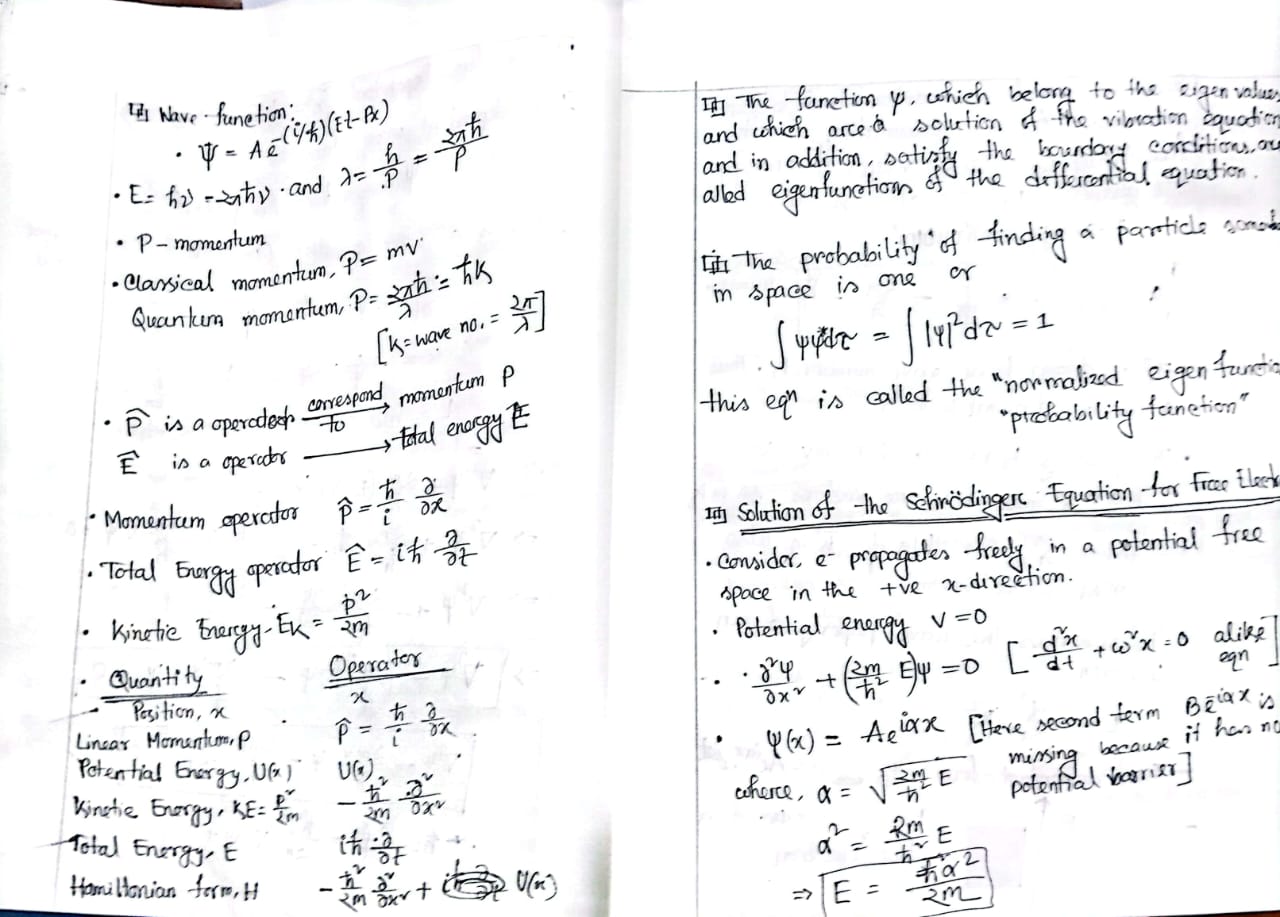 Wave function:
• Ψ = Ae^-(i/ħ)(Et-Px)
• E = hν = 2πħν and λ = h/P = 2πħ/P
• P - momentum
• Classical momentum, P = mv
Quantum momentum, P = 2πħ/λ = ħK
[K = wave no. = 2π/λ]
• P̂ is a operator correspond to → momentum P
Ê is a operator → total energy E
• Momentum operator P̂ = ħ/i ∂/∂x
• Total Energy operator Ê = iħ ∂/∂t
• Kinetic Energy, E_K = p²/2m
• Quantity Operator
Position, x x
Linear Momentum, P P̂ = ħ/i ∂/∂x
Potential Energy, U(x) U(x)
Kinetic Energy, KE = p²/2m -ħ²/2m ∂²/∂x²
Total Energy, E iħ ∂/∂t
Hamiltonian form, H -ħ²/2m ∂²/∂x² + U(x)
The function ψ, which belong to the eigen values
and which are a solution of the vibration equation
and in addition, satisfy the boundary conditions, are
alled eigenfunctions of the differential equation.
The probability of finding a particle some
in space is one or
∫ψψ*dτ = ∫|ψ|²dτ = 1
this eqn is called the "normalized eigen functio
"probability function"
Solution of the Schrödinger Equation for Free Elect
• Consider, e⁻ propagates freely in a potential free
space in the +ve x-direction.
• Potential energy V = 0
• ∂²ψ/∂x² + (2m/ħ² E)ψ = 0 [d²x/dt + ω²x = 0 alike eqn]
• ψ(x) = Ae^iαx [Here second term Be^-iαx is
missing because it has no
potential barrier]
where, α = √(2m/ħ² E)
α² = 2m/ħ² E
⇒ E = ħ²α²/2m